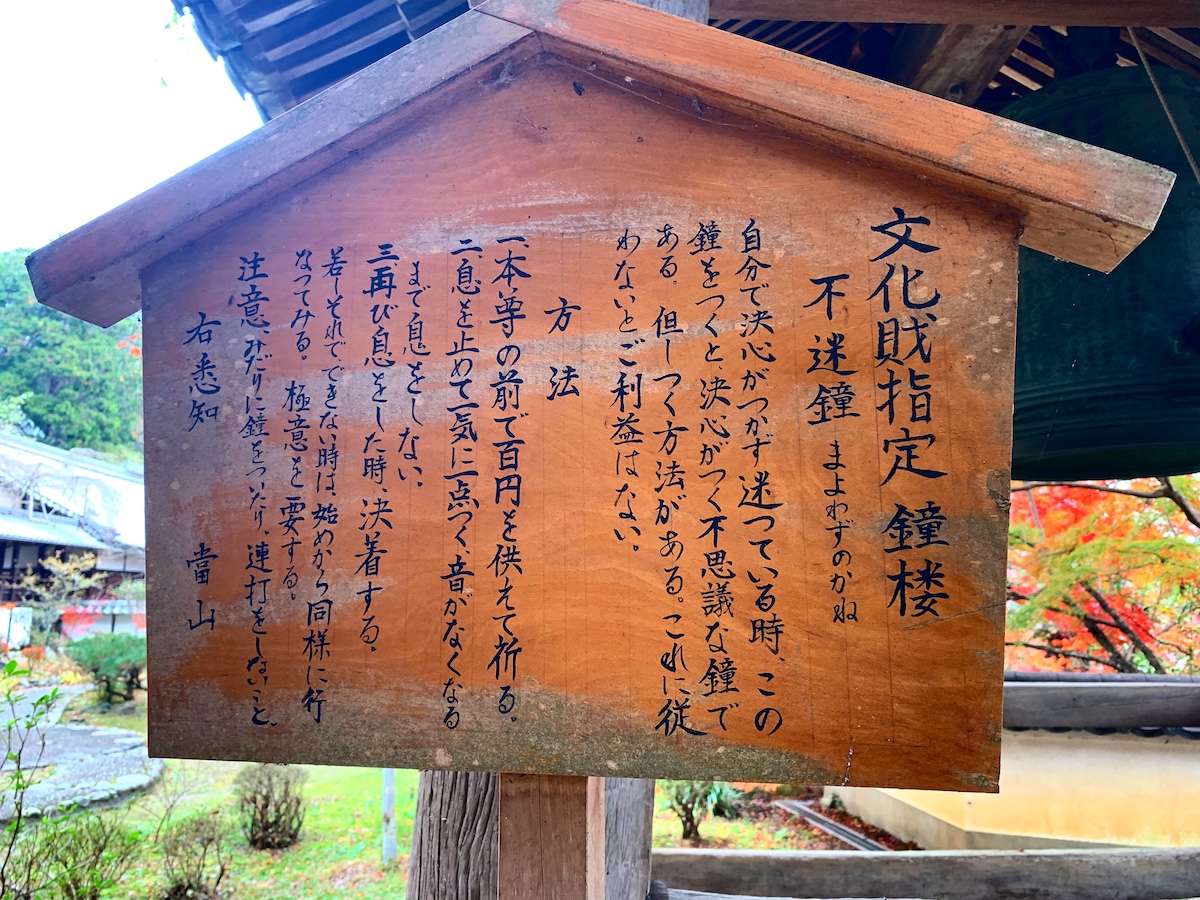 文化財指定 鐘楼
不迷鐘 まよわずのかね
自分で決心がつかず迷っている時、この
鐘をつくと、決心がつく不思議な鐘で
ある。但しつく方法がある。これに従
わないとご利益はない。
方法
一、本尊の前で百円を供えて祈る。
二、息を止めて一気に一点つく、音がなくなる
まで息をしない。
三、再び息をした時、決着する。
若しそれでできない時は、始めから同様に行
なってみる。極意を要する。
注意、みだりに鐘をついたり、連打をしないこと。
右悉知 當山